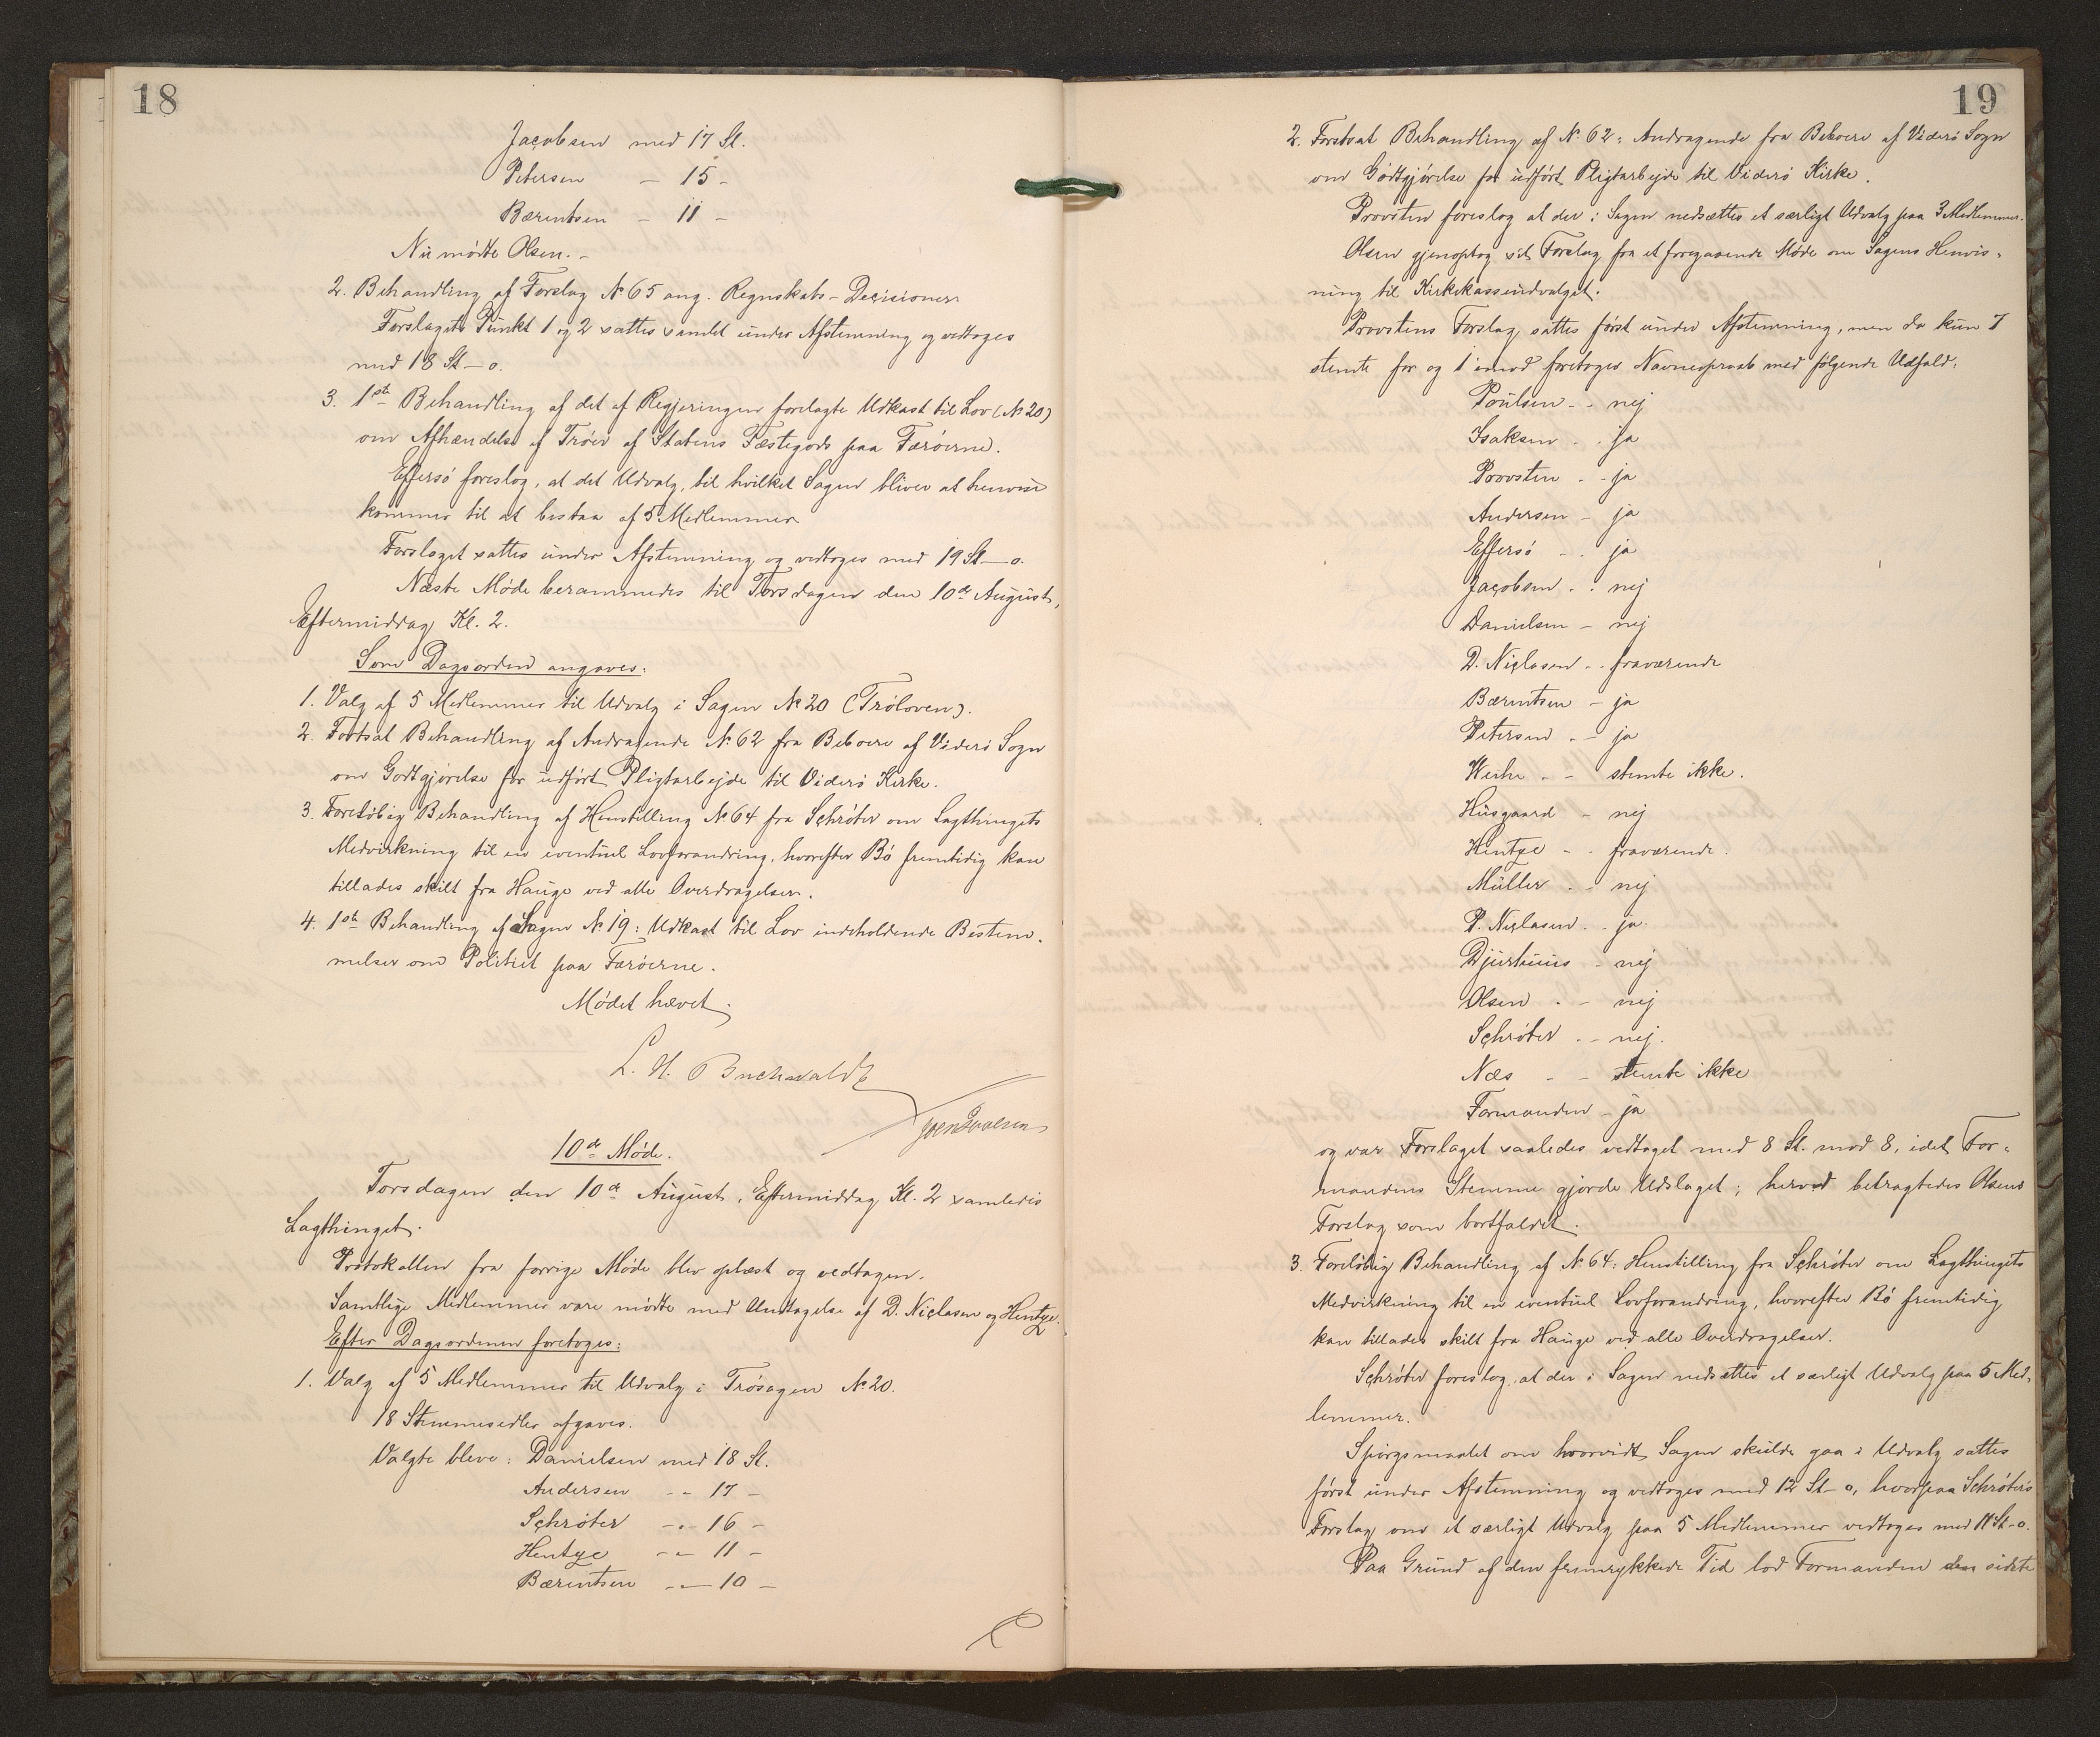 18
Jacobsen med 17 St.
Petersen – 15 –
Bærentsen – 11 –
Nu mødte Olsen. –
2. Behandling af Forslag No 65 ang. Regnskabs-Decisioner
Forslagets Punkt 1 og 2 sattes samlet under Afstemning og vedtoges
med 18 St – o.
3. 1ste Behandling af det af Regjeringen forelagte Udkast til Lov (No 20)
om Afhændelse af Trøer af Statens Fæstegods paa Færøerne.
Effersø foreslog, at det Udvalg, til hvilket Sagen bliver at henvise
kommer til at bestaa af 5 Medlemmer
Forslaget sattes under Afstemning og vedtoges med 19 St – o.
Næste Møde berammedes til Torsdagen den 10de August,
Eftermiddag Kl. 2.
Som Dagsorden angaves:
1. Valg af 5 Medlemmer til Udvalg i Sagen No 20 (Trøloven).
2. Fortsat Behandling af Andragende No 62 fra Beboere af Viderø Sogn
om Godtgjørelse for udført Pligtarbejde til Viderø Kirke.
3. Foreløbig Behandling af Henstilling No 64 fra Schrøter om Lagthingets
Medvirkning til en eventuel Lovforandring, hvorefter Bø fremtidig kan
tillades skilt fra Hauge ved alle Overdragelser.
4. 1ste Behandling af Sagen No 19: Udkast til Lov indeholdende Bestem-
melser om Politiet paa Færøerne.
Mødet hævet.
L. H. Buchwaldt
Joen Poulsen
10de Møde.
Torsdagen den 10de August, Eftermiddag Kl. 2 samledes
Lagthinget.
Protokollen fra forrige Møde blev oplæst og vedtagen.
Samtlige Medlemmer vare mødte med Undtagelse af D. Niclasen og Hentze.
Efter Dagsordenen foretoges:
1. Valg af 5 Medlemmer til Udvalg i Trøsagen No 20.
18 Stemmesedler afgaves.
Valgte bleve: Danielsen med 18 St.
Andersen – – 17 –
Schrøter – – 16 –
Hentze – – 11 –
Bærentsen – – 10 –
19
2. Fortsat Behandling af No 62: Andragende fra Beboere af Viderø Sogn
om Godtgjørelse for udført Pligtarbejde til Viderø Kirke.
Provsten foreslog at der i Sagen nedsættes et særligt Udvalg paa 3 Medlemmer.
Olsen gjenoptog sit Forslag fra et foregaaende Møde om Sagens Henvis-
ning til Kirkekasseudvalget.
Provstens Forslag sattes først under Afstemning, men da kun 7
stemte for og 1 imod foretoges Navneopraab med følgende Udfald:
Poulsen – – nej
Isaksen – – ja
Provsten – – ja
Andersen – ja
Effersø – – ja
Jacobsen – – nej
Danielsen – nej
D. Niclasen – – fraværende
Bærentsen – ja
Petersen – – ja
Weihe – – stemte ikke.
Husgaard – nej
Hentze – – fraværende.
Müller – – nej
P. Niclasen – – ja.
Djurhuus – nej
Olsen – – nej
Schrøter – – nej.
Næs – – stemte ikke
Formanden – ja
og var Forslaget saaledes vedtaget med 8 St. mod 8, idet For-
mandens Stemme gjorde Udslaget; herved betragtedes Olsens
Forslag som bortfaldet.
3. Foreløbig Behandling af No 64: Henstilling fra Schrøter om Lagthingets
Medvirkning til en eventuel Lovforandring, hvorefter Bø fremtidig
kan tillades skilt fra Hauge ved alle Overdragelser.
Schrøter foreslog, at der i Sagen nedsættes et særligt Udvalg paa 5 Med-
lemmer.
Spørgsmaalet om hvorvidt Sagen skulde gaa i Udvalg sattes
først under Afstemning og vedtoges med 12 St – o, hvorpaa Schrøters
Forslag om et særligt Udvalg paa 5 Medlemmer vedtoges med 11 St – o.
Paa Grund af den fremrykkede Tid lod Formanden den sidste